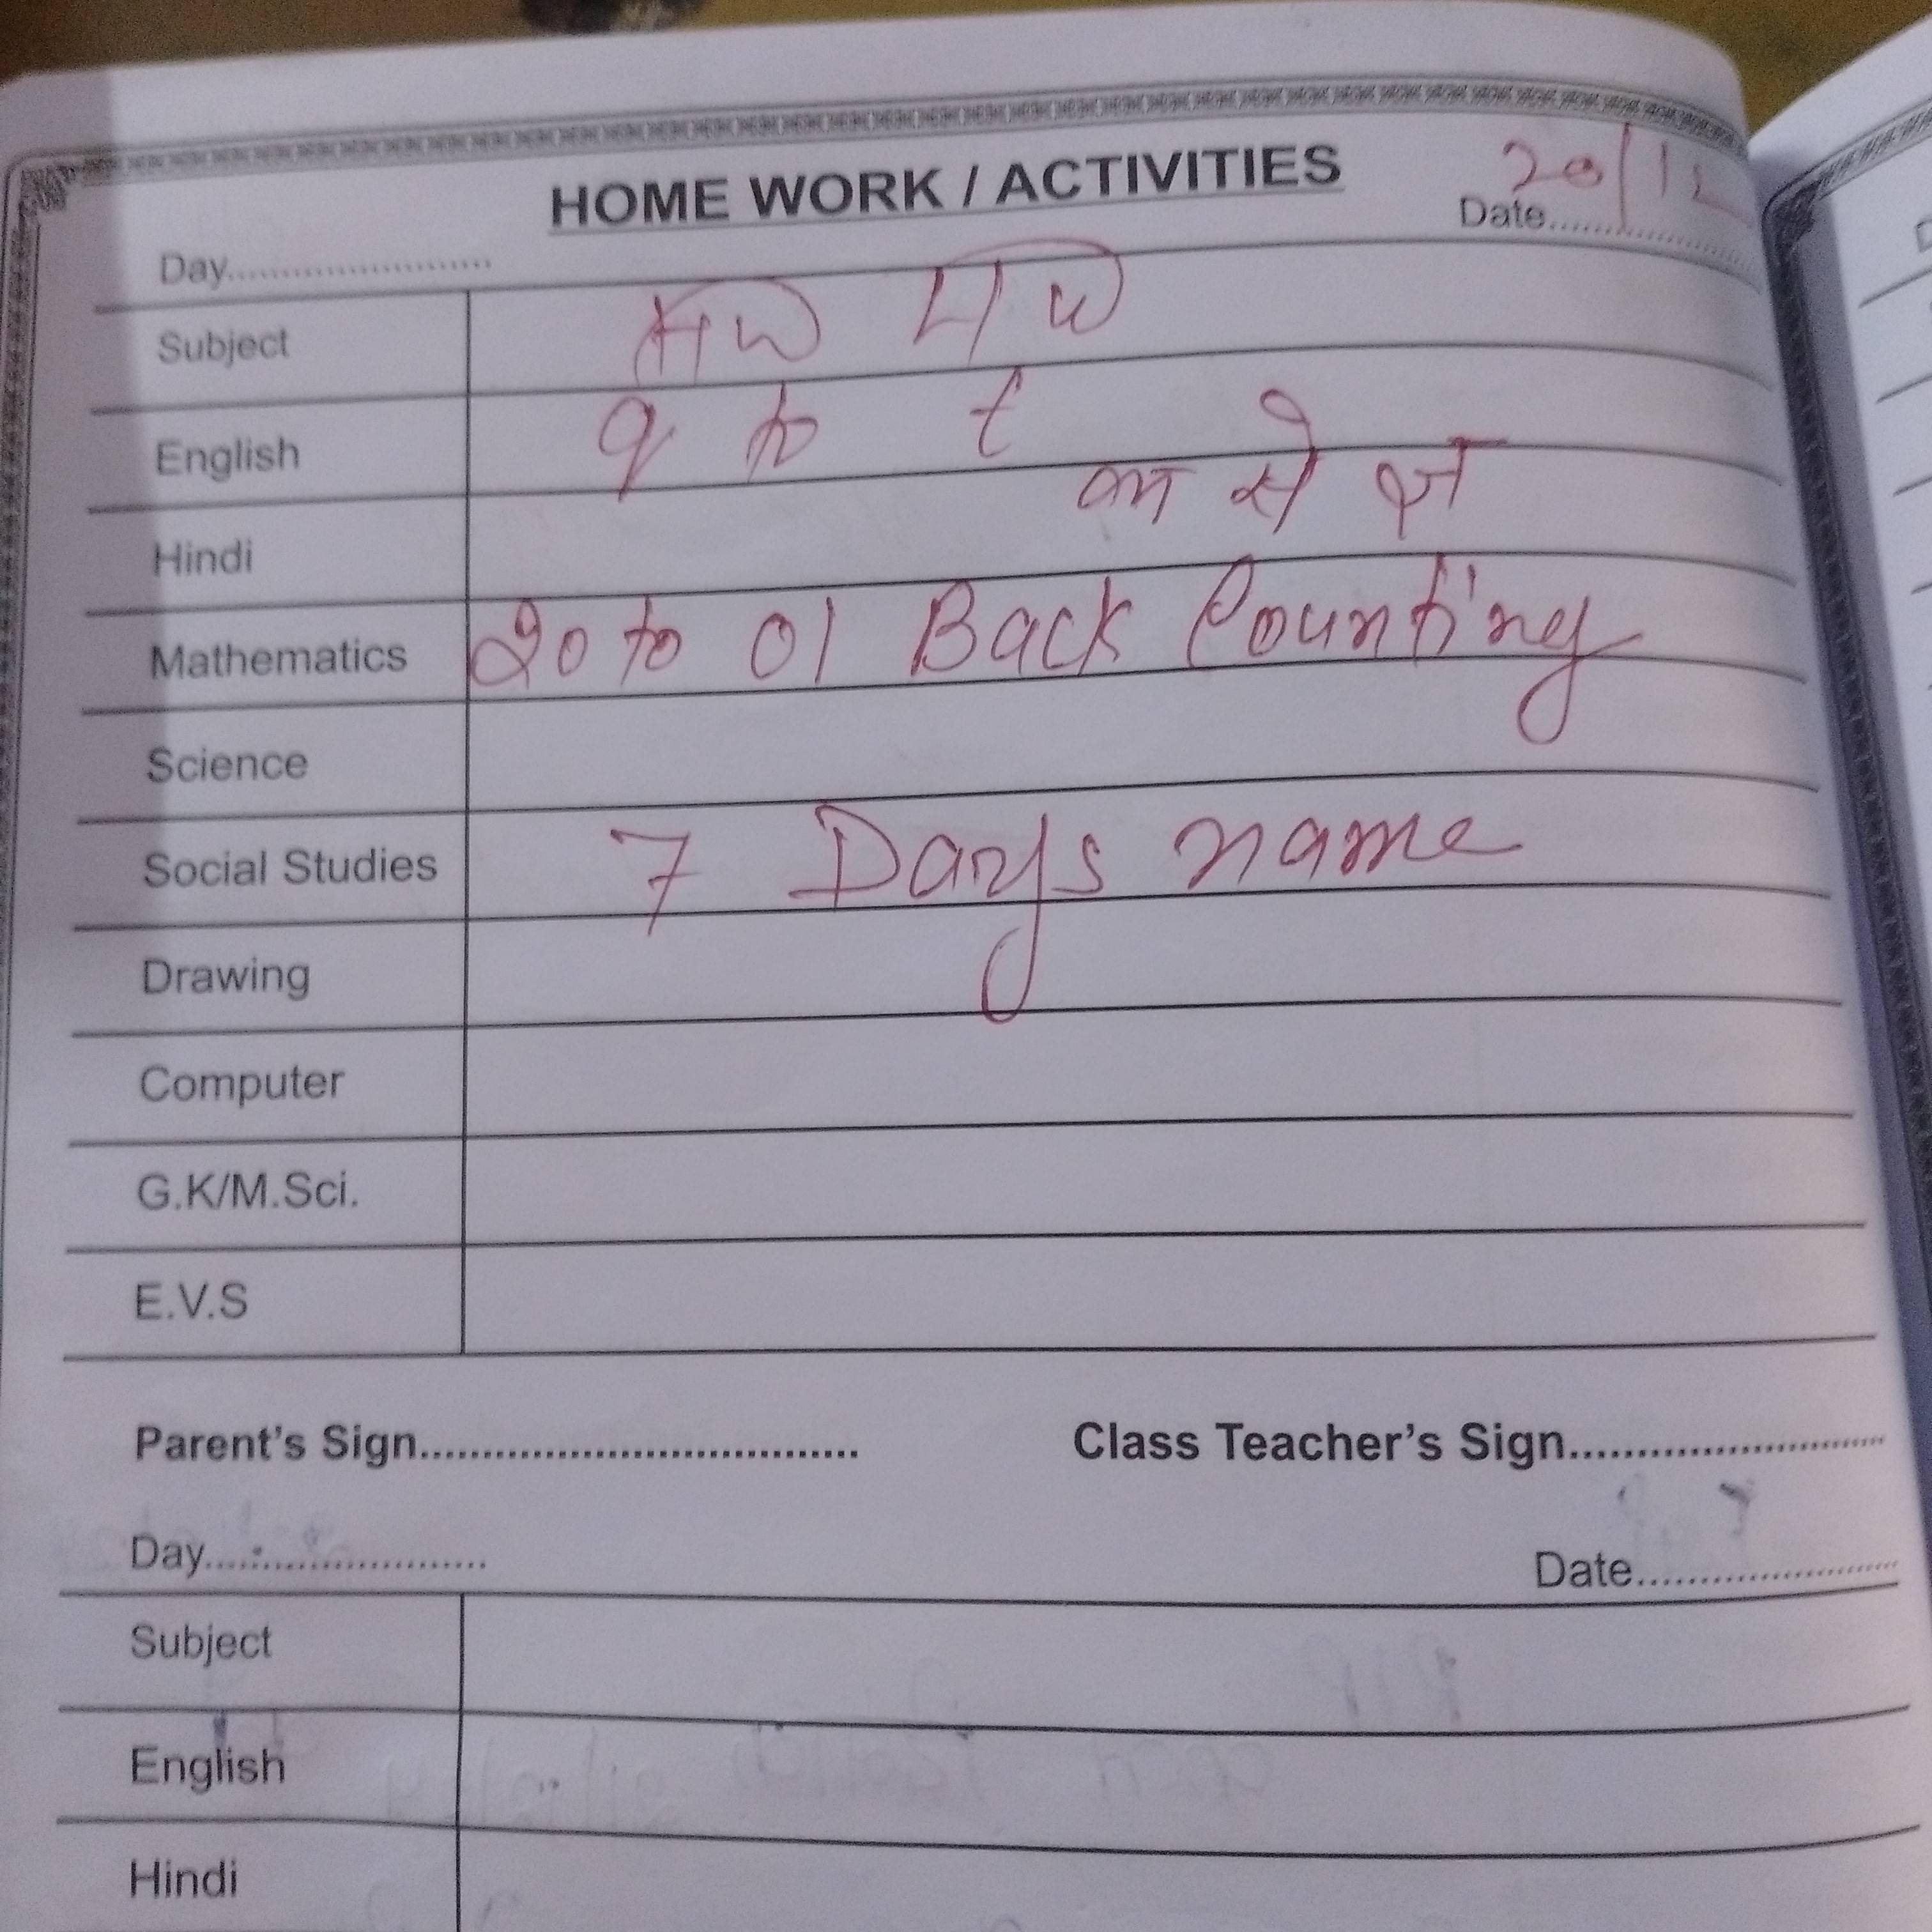 HOME WORK / ACTIVITIES
Day........................ Date........................ 20/12
Subject HW HW
English q to t
Hindi क से ज्ञ
Mathematics 20 to 01 Back Counting
Science
Social Studies 7 Days name
Drawing
Computer
G.K/M.Sci.
E.V.S
Parent's Sign................................... Class Teacher's Sign.........................
Day........................ Date........................
Subject
English
Hindi